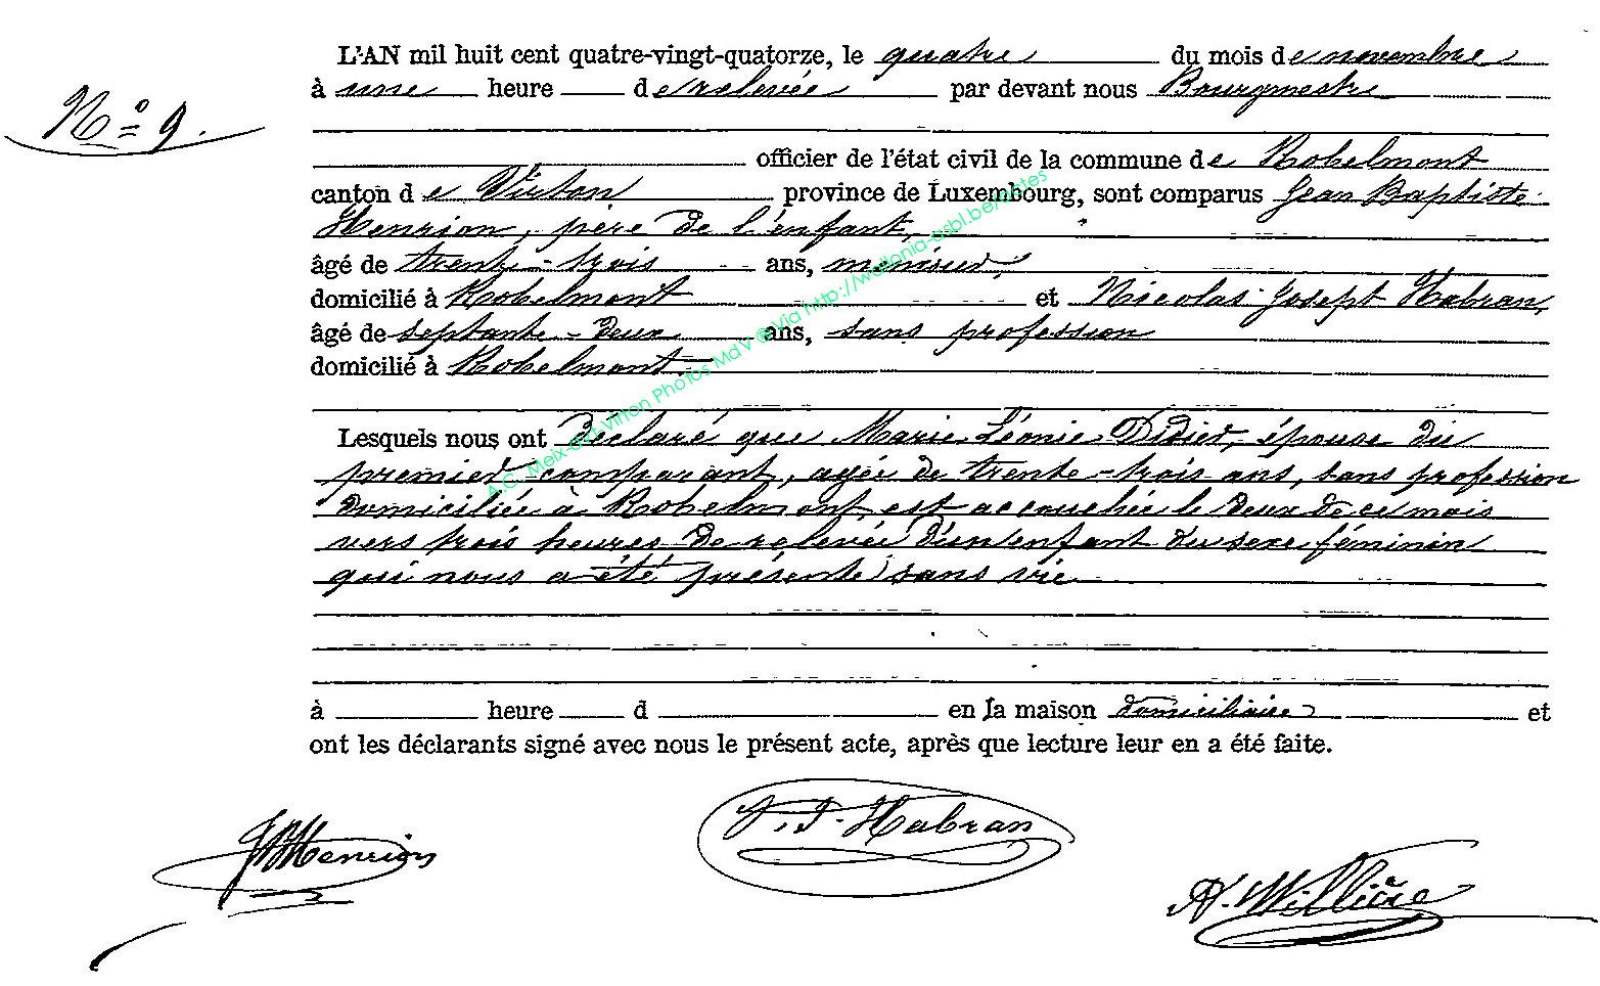 L'AN mil huit cent quatre-vingt-quatorze, le quatre du mois de novembre
à une heure de relevée par devant nous Bourgmestre
N° 9.
officier de l'état civil de la commune de Robelmont
canton de Virton province de Luxembourg, sont comparus Jean Baptiste
Henrion, père de l'enfant,
âgé de trente-trois ans, menuisier,
domicilié à Robelmont et Nicolas Joseph Habran,
âgé de septante-deux ans, sans profession
domicilié à Robelmont.
Lesquels nous ont déclaré que Marie Léonie Didier, épouse du
premier comparant, agée de trente-trois ans, sans profession
domiciliée à Robelmont est accouchée le deux de ce mois
vers trois heures de relevée d'un enfant du sexe féminin
qui nous a été présenté sans vie
à heure d en la maison domiciliaire et
ont les déclarants signé avec nous le présent acte, après que lecture leur en a été faite.
A.C. Meix-dvt-Virton Photos MdV @ Via http://wallonia-asbl.be/actes
JBHenrion
J. Habran
A. Willière